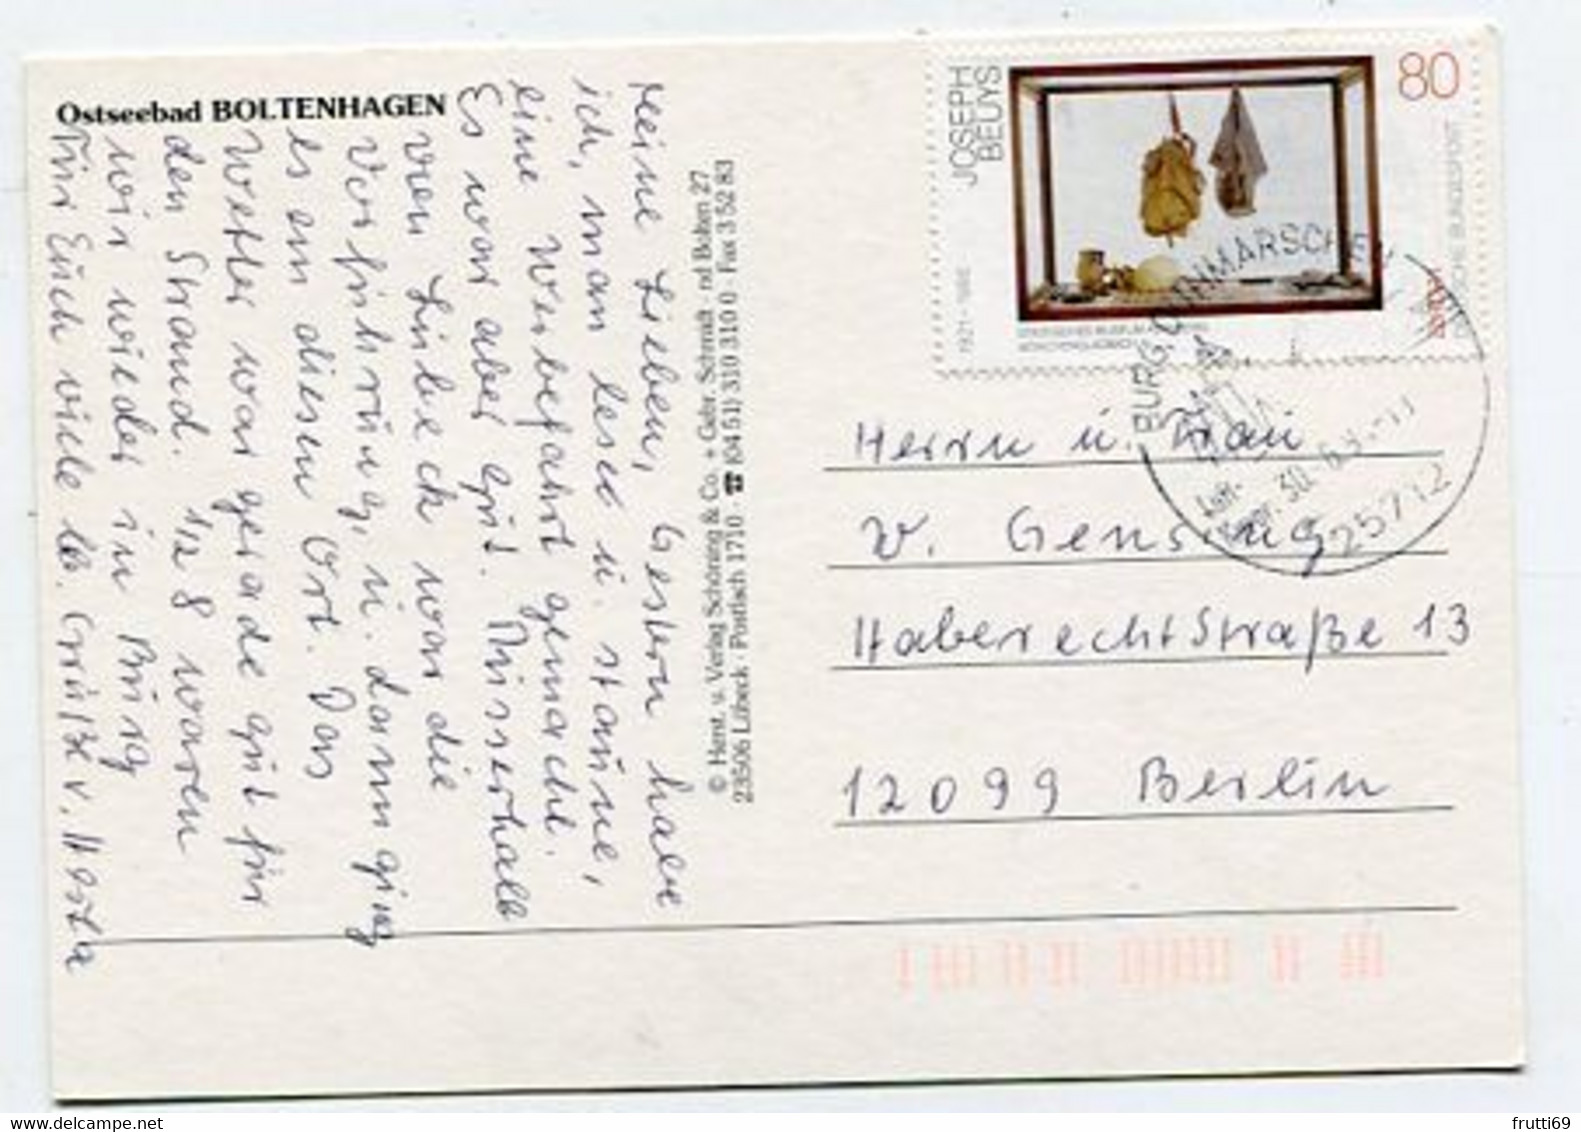 Ostseebad BOLTENHAGEN
Meine Lieben, Gestern habe
ich, man lese u. staune,
eine Werbefahrt gemacht.
Es war aber gut. Ausserhalb
von Lübeck war die
Vorführung, u. dann ging
es an diesen Ort. Das
Wetter war gerade gut für
den Strand. 1/2 8 waren
wir wieder in Burg
Für Euch viele lb. Grüße v. Herta
© Herst. u. Verlag Schöning & Co. + Gebr. Schmidt · nd Bolten 27
23506 Lübeck · Postfach 1710 · ☎ (04 51) 310 310 0 · Fax 3 52 83
JOSEPH
BEUYS
1921-1986
80
DEUTSCHE BUNDESPOST
BURG, DITHMARSCHEN
Luft-
30. 6.
25712
Herrn u. Frau
v. Gensing
Haberechtstraße 13
12099 Berlin
frutti69